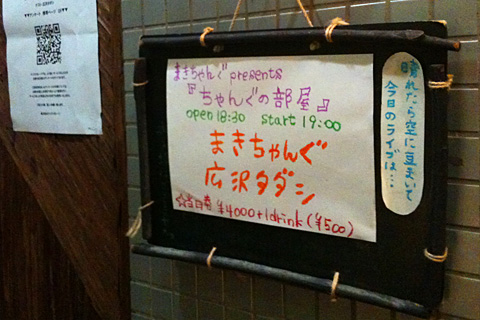 まきちゃんぐ presents
『ちゃんぐの部屋』
open 18:30 start 19:00
まきちゃんぐ
広沢タダシ
☆当日券 ¥4000+1drink(¥500)
晴れたら空に豆まいて
今日のライブは…